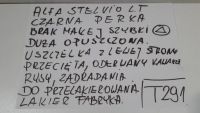 ALFA STELVIO LT
CZARNA PERŁA
BRAK MAŁEJ SZYBKI
DUŻA OPUSZCZONA.
USZCZELKA Z LEWEJ STRONY
PRZECIĘTA, ODERWANY KAWAŁEK
RYSY, ZADRAPANIA.
DO PRZELAKIEROWANIA.
LAKIER FABRYKA.
T291